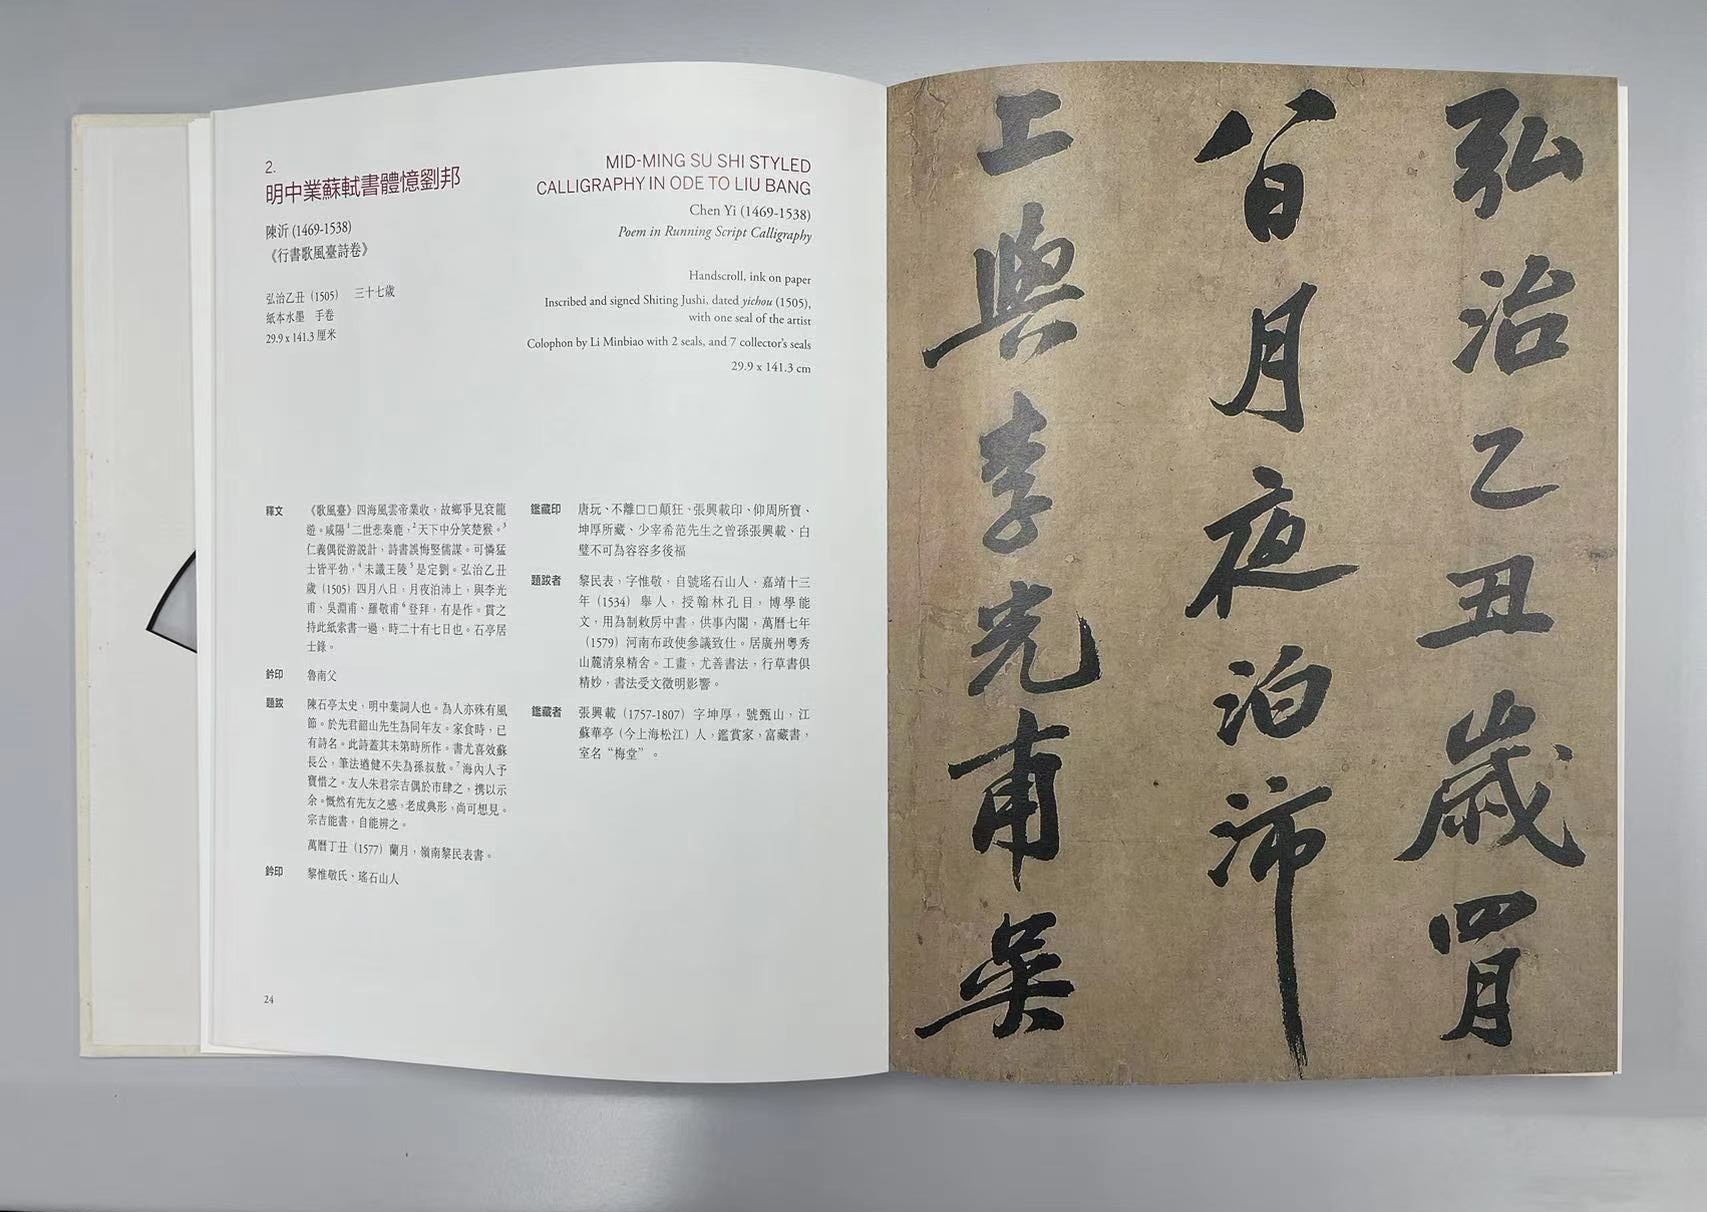 2.
明中業蘇軾書體憶劉邦
陳沂 (1469-1538)
《行書歌風臺詩卷》
弘治乙丑（1505） 三十七歲
紙本水墨 手卷
29.9 x 141.3 厘米
MID-MING SU SHI STYLED
CALLIGRAPHY IN ODE TO LIU BANG
Chen Yi (1469-1538)
Poem in Running Script Calligraphy
Handscroll, ink on paper
Inscribed and signed Shiting Jushi, dated yichou (1505),
with one seal of the artist
Colophon by Li Minbiao with 2 seals, and 7 collector's seals
29.9 x 141.3 cm
釋文
《歌風臺》四海風雲帝業收，故鄉爭見袞龍
遊。咸陽1二世悲秦鹿，2天下中分笑楚猴。3
仁義偶從游説計，詩書誤悔堅儒謀。可憐猛
士皆平勃，4未識王陵5是定劉。弘治乙丑
歲（1505）四月八日，月夜泊沛上，與李光
甫、吳淵甫、羅敬甫6登拜，有是作。貫之
持此紙索書一過，時二十有七日也。石亭居
士錄。
鈐印
魯南父
題跋
陳石亭太史，明中葉詞人也。為人亦殊有風
節。於先君韶山先生為同年友。家食時，已
有詩名。此詩蓋其未第時所作。書尤喜效蘇
長公，筆法遒健不失為孫叔敖。7海內人予
寶惜之。友人朱君宗吉偶於市肆之，携以示
余。慨然有先友之感，老成典形，尚可想見。
宗吉能書，自能辨之。
萬曆丁丑（1577）蘭月，嶺南黎民表書。
鈐印
黎惟敬氏、瑤石山人
鑑藏印
唐玩、不離□□顛狂、張興載印、仰周所寶、
坤厚所藏、少宰希范先生之曾孫張興載、白
璧不可為容容多後福
題跋者
黎民表，字惟敬，自號瑤石山人，嘉靖十三
年（1534）舉人，授翰林孔目，博學能
文，用為制敕房中書，供事內閣，萬曆七年
（1579）河南布政使參議致仕。居廣州粵秀
山麓清泉精舍。工畫，尤善書法，行草書俱
精妙，書法受文徵明影響。
鑑藏者
張興載（1757-1807）字坤厚，號甄山，江
蘇華亭（今上海松江）人，鑑賞家，富藏書，
室名“梅堂”。
24
弘治乙丑歲四月
八日月夜泊沛
上與李光甫吳